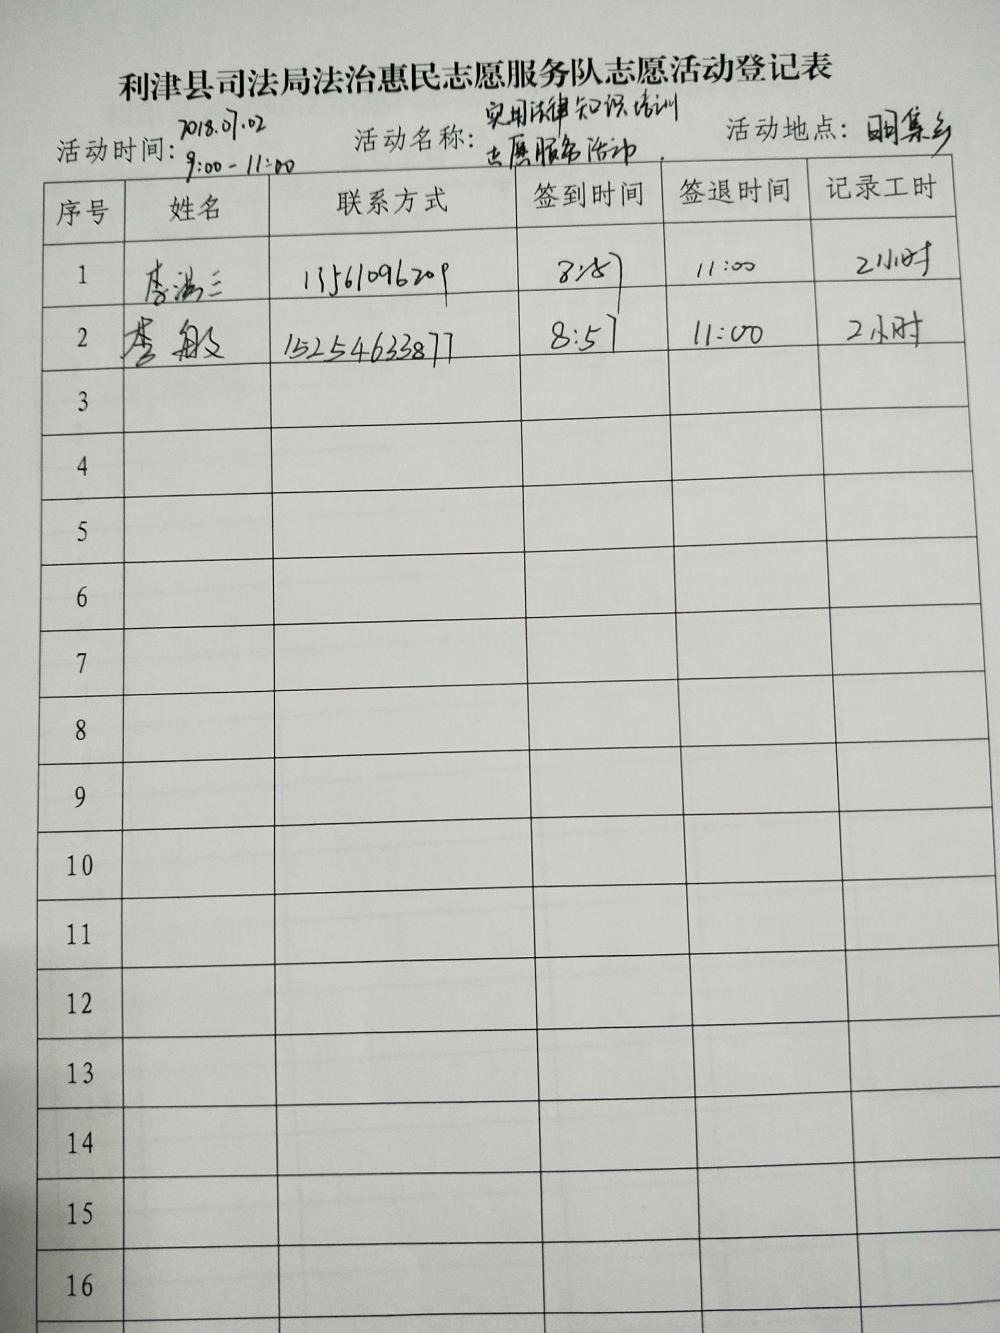 利津县司法局法治惠民志愿服务队志愿活动登记表
活动时间: 2018.07.02 9:00-11:00 活动名称: 实用法律知识培训志愿服务活动. 活动地点: 明集乡
序号 姓名 联系方式 签到时间 签退时间 记录工时
1 李 三 13561096209 8:57 11:00 2小时
2 李敏 15254633877 8:57 11:00 2小时
3
4
5
6
7
8
9
10
11
12
13
14
15
16